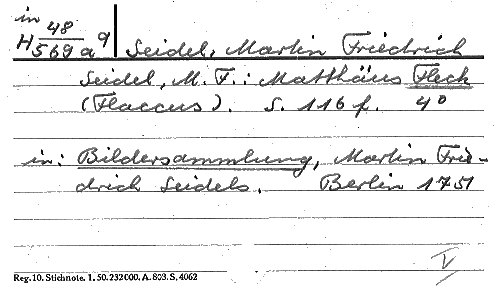 in
H 48/569 a q
Seidel, Martin Friedrich
Seidel, M. F.: Matthäus Fleck
(Flaccus). S. 116 f. 4°
in: Bildersammlung, Martin Frie-
drich Seidels. Berlin 1751
V
Reg. 10. Stichnote. 1. 50. 232000. A. 803. S. 4062